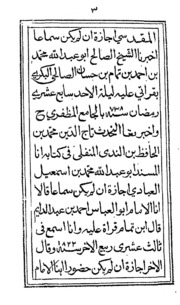 ٣
المقدسي اجازة ان لم يكن سماعا
اخبرنا الشيخ الصالح ابو عبدالله محمد
بن احمد بن تمام بن حسان الصالحي
بقراتي عليه ليلة الاحد سابع عشرى
رمضان سنة بالجامع المظفري ح
واخبرنا المحدث تاج الدين محمد بن
الحافظ بن في كتابه انا
المسند ابو عبدالله محمد بن اسمعيل
العبادي اجازة ان لم يكن سماعا قالا
انا الامام ابو العباس احمد بن عبدالدايم
قال ابن تمام قراة عليه وانا اسمع في
ثالث عشرى ربيع الاخر وقال
الاخر اجازة ان لم يكن حضورا انبانا الامام